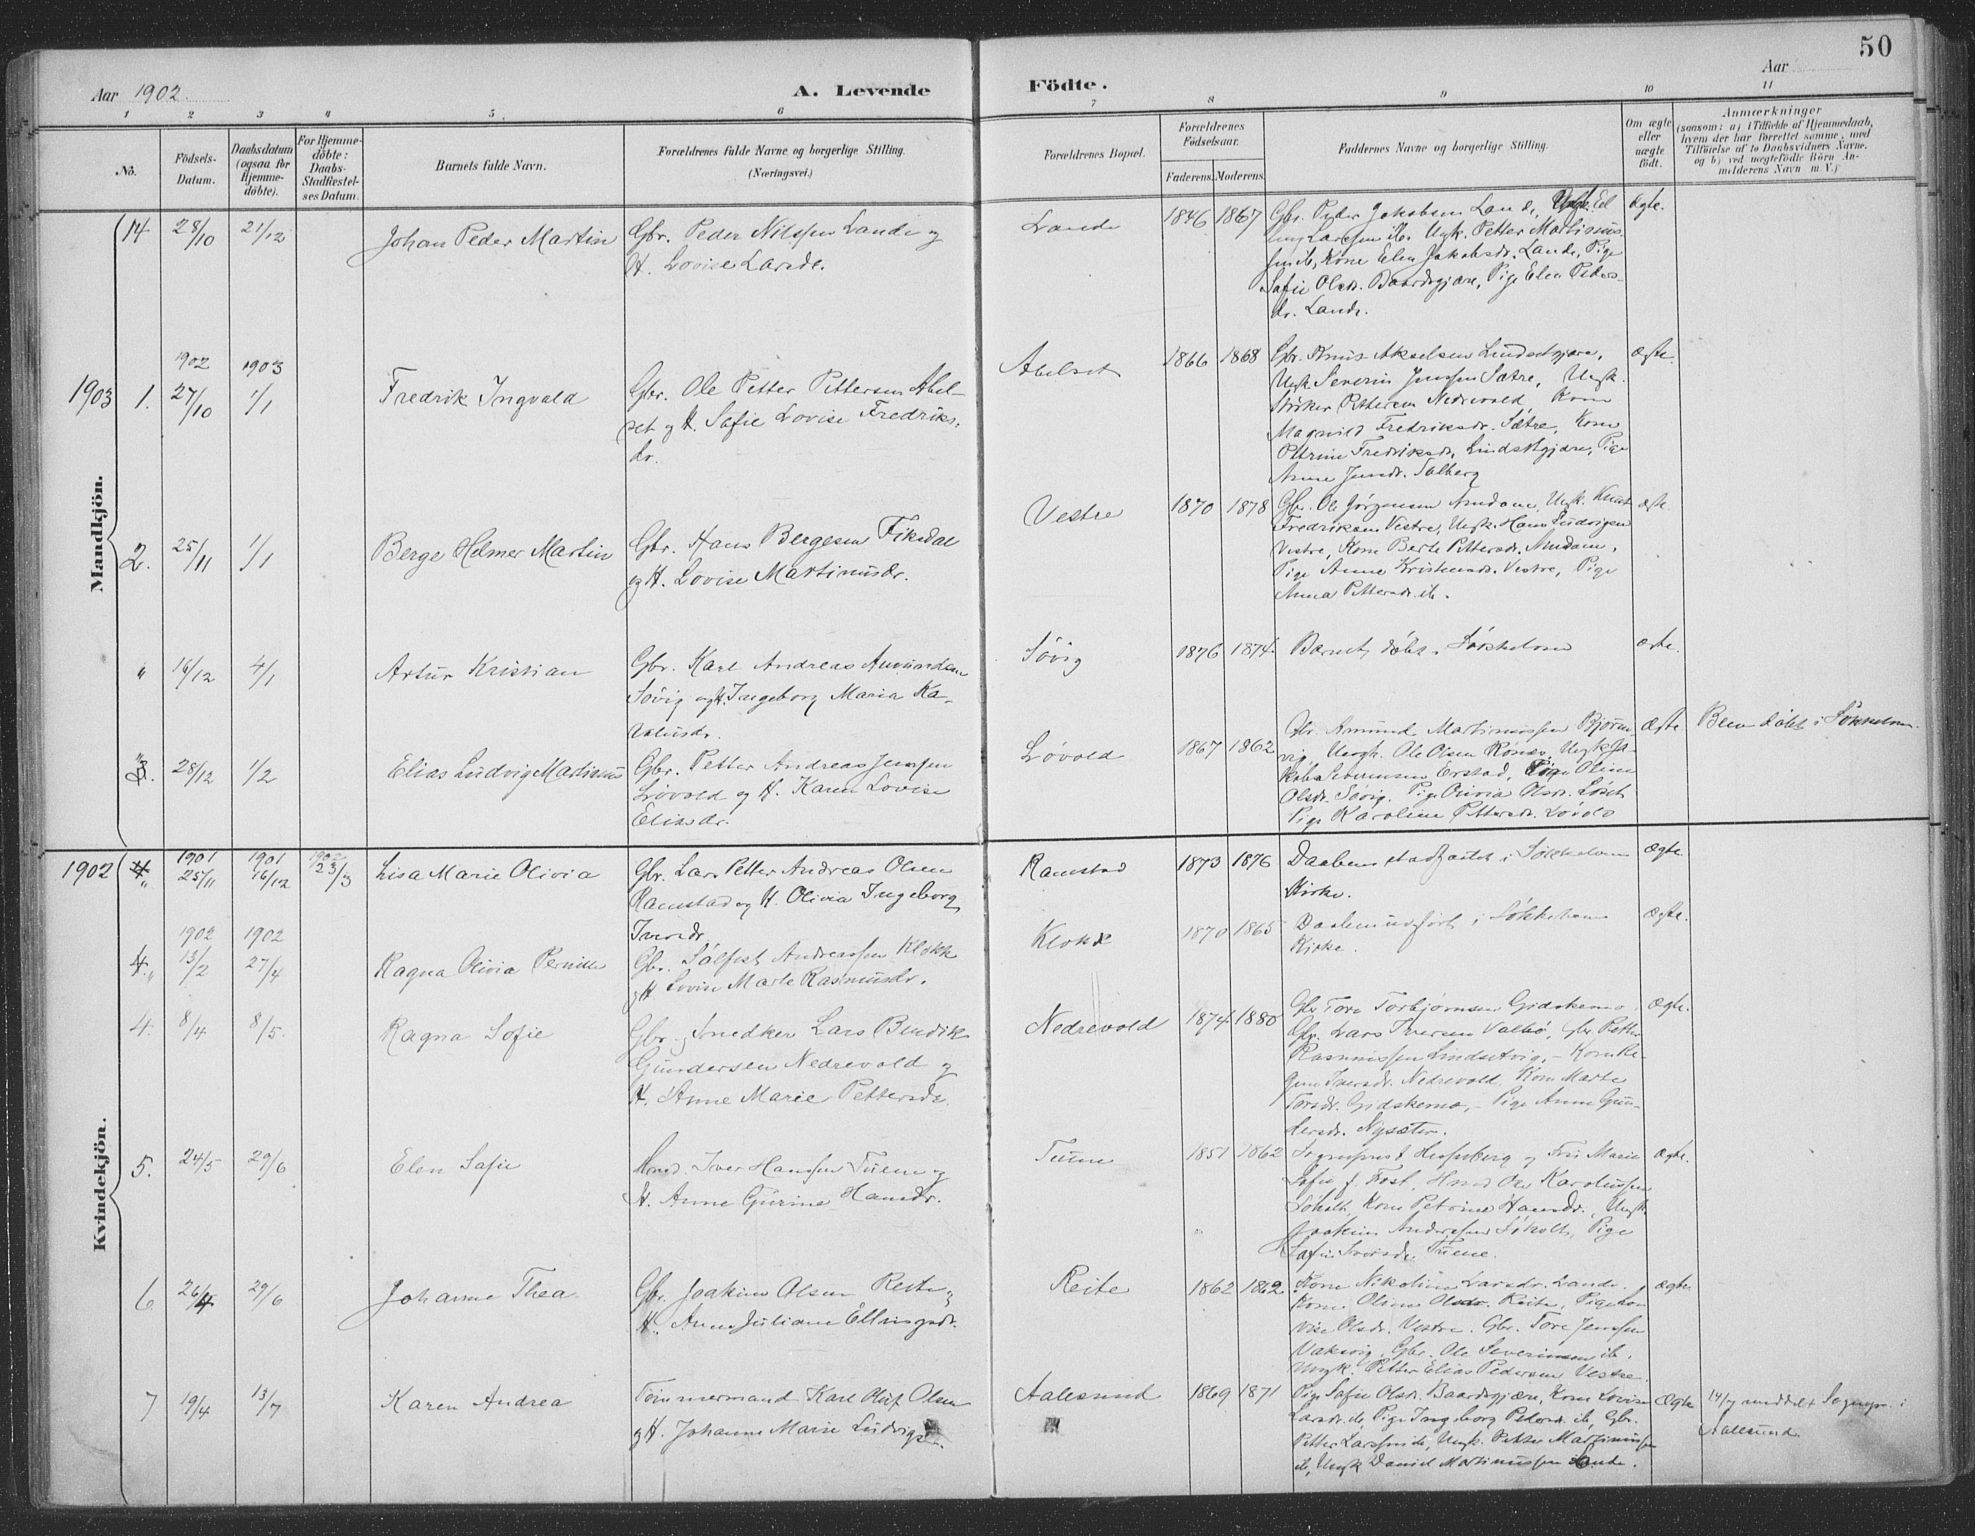 50
Aar 1902.
A. Levende
Födte.
Aar
1 2 3 4 5 6 7 8 9 10 11
No.
Födsels-
Datum.
Daabsdatum
(ogsaa for
Hjemme-
döbte).
For Hjemme-
döbte:
Daabs-
Stadfæstel-
ses Datum.
Barnets fulde Navn.
Forældrenes fulde Navne og borgerlige Stilling.
(Næringsvei.)
Forældrenes Bopæl.
Forældrenes
Födselsaar.
Faderens. Moderens.
Faddernes Navne og borgerlige Stilling.
Om ægte
eller
uægte
födt.
Anmærkninger
(saasom: a) i Tilfælde af Hjemmedaab,
hvem der har forrettet samme, med
Tilföielse af to Daabsvidners Navne,
og b) ved uægtefödte Börn An-
melderens Navn m. V.)
Mandkjön.
14. 28/10 21/12
Johan Peder Martin
Gbr. Peder Nilssen Lande og
H. Lovise Larsdr.
Lande
1846 1867
Gbr. Peder Jakobsen Lande, Ungk. El
ling Larssen ib. Ungk. Petter Martinus
sen ib, Kone Elen Jakobsdr. Lande, Pige
Safie Olsdr. Baardsgjære, Pige Elen Peders-
dr. Lande.
ægte.
1903
1. 1902 27/10 1903 1/1
Fredrik Ingvald
Gbr. Ole Petter Pettersen Abel-
set og H. Safie Lovise Fredriks-
dr.
Abelset
1866 1868
Gbr. Knut Akselsen Lindsetgjære,
Ungk. Severin Jenssen Sætre, Ungk.
Pettersen Nedrevold Kone
Magnild Fredriksdr. Sætre, Kone
Petrine Fredriksdr. Lindsetgjære, Pige
Anne Jensdr. Solberg
ægte.
2. 25/11 1/1
Berge Helmer Martin
Gbr. Hans Bergesen Fiksdal
og H. Lovise Martinusdr.
Vestre
1870 1878
Gbr. Ole Jørgensen Amdam, Ungk. Knut
Fredriksen Vestre, Ungk. Hans Ludvigsen
Vestre, Kone Berte Pettersdr. Amdam,
Pige Anne Kristensdr. Vestre, Pige
Anna Pettersdr. ib.
ægte.
" 16/12 4/1
Artur Kristian
Gbr. Karl Andreas Amundsen
Søvig og H. Ingeborg Maria Ka-
Søvig
1876 1874
Barnet døbt i Søkkelven
ægte.
3. 28/12 1/2
Elias Ludvig Martinus
Gbr. Petter Andreas Jenssen
Løvold og H. Karen Lovise
Eliasdr.
Løvold
1867 1862
Gbr. Amund Martinussen Bjørn-
vig, Ungk. Ole Olsen Ronæs, Ungk. Ja-
kob Severinsen Erstad, Pige Oline
Olsdr. Søvig. Pige Olivia Olsdr. Løset
Pige Karoline Pettersdr. Løvold
ægte
Blev døbt i Søkkelven.
1902
Kvindekjön.
" 1901 25/11 1901 16/12 1902 23/3
Lisa Marie Olivia
Gbr. Lars Petter Andreas Olsen
Ramstad og H. Olivia Ingeborg
Iversdr.
Ramstad
1873 1876
Daaben stadfæstet i Søkkelven
Kirke.
ægte.
1902 13/2 1902 27/4
Ragna Olivia Pernille
Gbr. Sølfest Andreassen Klokk
og H Lovise Marte Rasmusdr.
Klokk
1870 1865
Daaben udført i Søkkelven
Kirke.
ægte.
4. 8/4 8/5.
Ragna Sofie
Gbr. og Snedker Lars Bendik
Gundersen Nedrevold og
H. Anne Marie Pettersdr.
Nedrevold
1874 1880
Gbr Tore Torbjørnsen Gidskemo
Gbr. Lars Iversen Valbø, Gbr Petter
Rasmussen Lindsetvig, - Kone Re-
gine Iversdr. Nedrevold Kone Marte
Torsdr. Gidskemo, - Pige Anne Gun-
dersdr. Nysæter.
ægte.
5. 24/5 29/6
Elen Safie
Hmd. Iver Hanssen Tuene og
H. Anne Gurine Hansdr.
Tuene
1851 1862
Sogneprest Hesselberg og Fru Marie
Sofie f. Fost, Hmd Ole Karolussen
Søholt, Kone Petrine Hansdr., Ungk.
Joakim Anderssen Søholt, Pige
Safie Iversdr Tuene.
ægte.
6 26/4 29/6
Johanne Thea.
Gbr. Joakim Olsen Reite og
H. Anne Juliane Ellingsdr.
Reite
1862 1862.
Kone Nikoline Larsdr. Lande,
Kone Oline Olsdr. Reite, Pige Lo-
vise Olsdr. Vestre. Gbr. Tore Jenssen
Vaksvig, Gbr. Ole Severinsen ib.
Ungk. Petter Elias Pedersen Vestre.
ægte
7 19/4 13/7
Karen Andrea
Tømmermand Karl Oluf Olsen
og H. Johanne Marie Ludvigs
Aalesund
1869 1871
Pige Safie Olsdr. Baardsgjære, Kone Lovise
Larsdr ib, Pige Ingeborg Pedersdr ib, Gbr.
Petter Larssen ib, Ungk. Petter Martinussen
ib, Ungk Daniel Martinussen Lande.
Ægte
14/7 meddelt Sognepr. i
Aalesund.